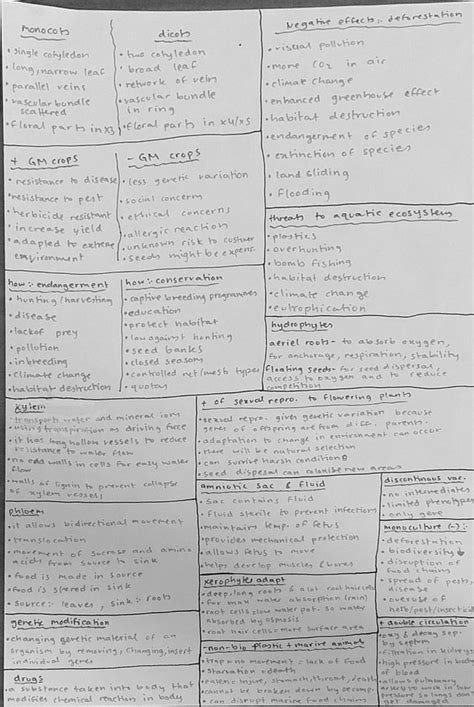 monocots
• single cotyledon
• long, narrow leaf
• parallel veins
• vascular bundle
scattered
• floral parts in x3
dicots
• two cotyledon
• broad leaf
• network of vein
• vascular bundle
in ring
• floral parts in x4/x5
Negative effects:- deforestation
• visual pollution
• more CO2 in air
• climate change
• enhanced greenhouse effect
• habitat destruction
• endangerment of species
• extinction of species
• land sliding
• flooding
+ GM crops
• resistance to disease
• resistance to pest
• herbicide resistant
• increase yield
• adapted to extreme
environment
- GM crops
• less genetic variation
• social concerns
• ethical concerns
• allergic reaction
• unknown risk to
• seeds might be expens.
threats to aquatic ecosystem
• plastics
• overhunting
• bomb fishing
• habitat destruction
• climate change
• eutrophication
how:- endangerment
• hunting/harvesting
• disease
• lack of prey
• pollution
• inbreeding
• climate change
• habitat destruction
how:- conservation
• captive breeding programmes
• education
• protect habitat
• law against hunting
• seed banks
• closed seasons
• controlled net/mesh types
• quotas
hydrophytes
aeriel roots- to absorb oxygen,
for anchorage, respiration, stability
floating seeds- for seed dispersal,
access to oxygen and to reduce
competition
xylem
• transport water and mineral ions
using transpiration as driving force
• it has long hollow vessels to reduce
resistance to water flow
• no end walls in cells for easy water
flow
• walls of lignin to prevent collapse
of xylem vessels
+ of sexual repro. to flowering plants
• sexual repro. gives genetic variation because
genes of offspring are from diff. parents.
• adaptation to change in environment can occur
• there will be natural selection
• can survive harsh condition
• seed dispesal can colonise new areas
phloem
• it allows bidirectional movement
• translocation
• movement of sucrose and amino
acids from source to sink
• food is made in source
• food is stored in sink
• source:- leaves, sink:- roots
amniotic sac & fluid
• sac contains fluid
• fluid sterile to prevent infections
• maintains temp. of fetus
• provides mechanical protection
• allows fetus to move
• helps develop muscles & bones
discontinous var.
• no intermediates
• limited phenotypes
• only gene
monoculture (-):
• deforestation
• biodiversity
• disruption of
food chains
• spread of pests/
disease
• overuse of
herb/pest/insecticid
xerophytes adapt
• deep, long roots & alot root hair cells
for max water absorption (rain)
• root cells, low water pot. so water
absorbed by osmosis
• root hair cells = more surface area
genetic modification
• changing genetic material of an
organism by removing, changing, insert
individual genes
non-bio plastic + marine animals
• trap = no movement = lack of food
• starvation = death
• eaten = injure, stomach, throat, death
• cannot be broken down by decomp.
• can disrupt marine food chains
+ double circulation
• oxy & deoxy sep
by septum
• filtration in kidneys
• high pressure in body
of blood
• allows pulmonary
artery to work in low
pressure so lungs dont
get damaged
drugs
• a substance taken into body that
modifies chemical reaction in body